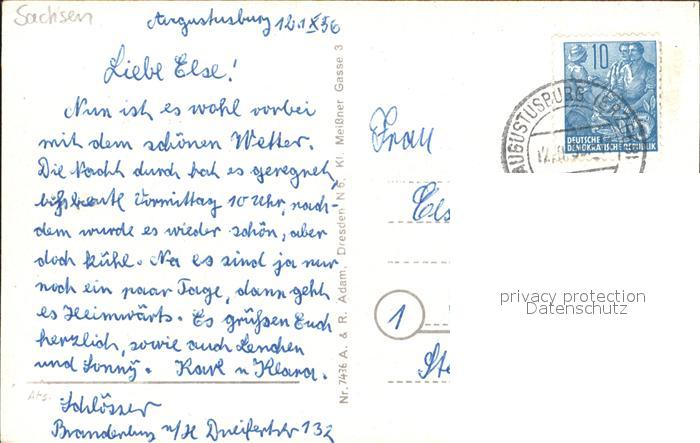 Sachsen
Augustusburg 12.IX.56
Liebe Else!
Nun ist es wohl vorbei
mit dem schönen Wetter.
Die Nacht durch hat es geregnet,
bis heute Vormittag 10 Uhr, nach-
dem wurde es wieder schön, aber
doch kühl. Na es sind ja nur
noch ein paar Tage, dann geht
es Heimwärts. Es grüßen Euch
herzlich, sowie auch Lenchen
und Sonny. Karl u Klara.
Abs.
Schlösser
Brandenburg a/H 132
Nr. 7436 A. & R. Adam, Dresden N 6, Kl. Meißner Gasse 3
10
DEUTSCHE
DEMOKRATISCHE REPUBLIK
AUGUSTUSBURG (ERZGEB)
Frau
Els
1
Ste
privacy protection
Datenschutz